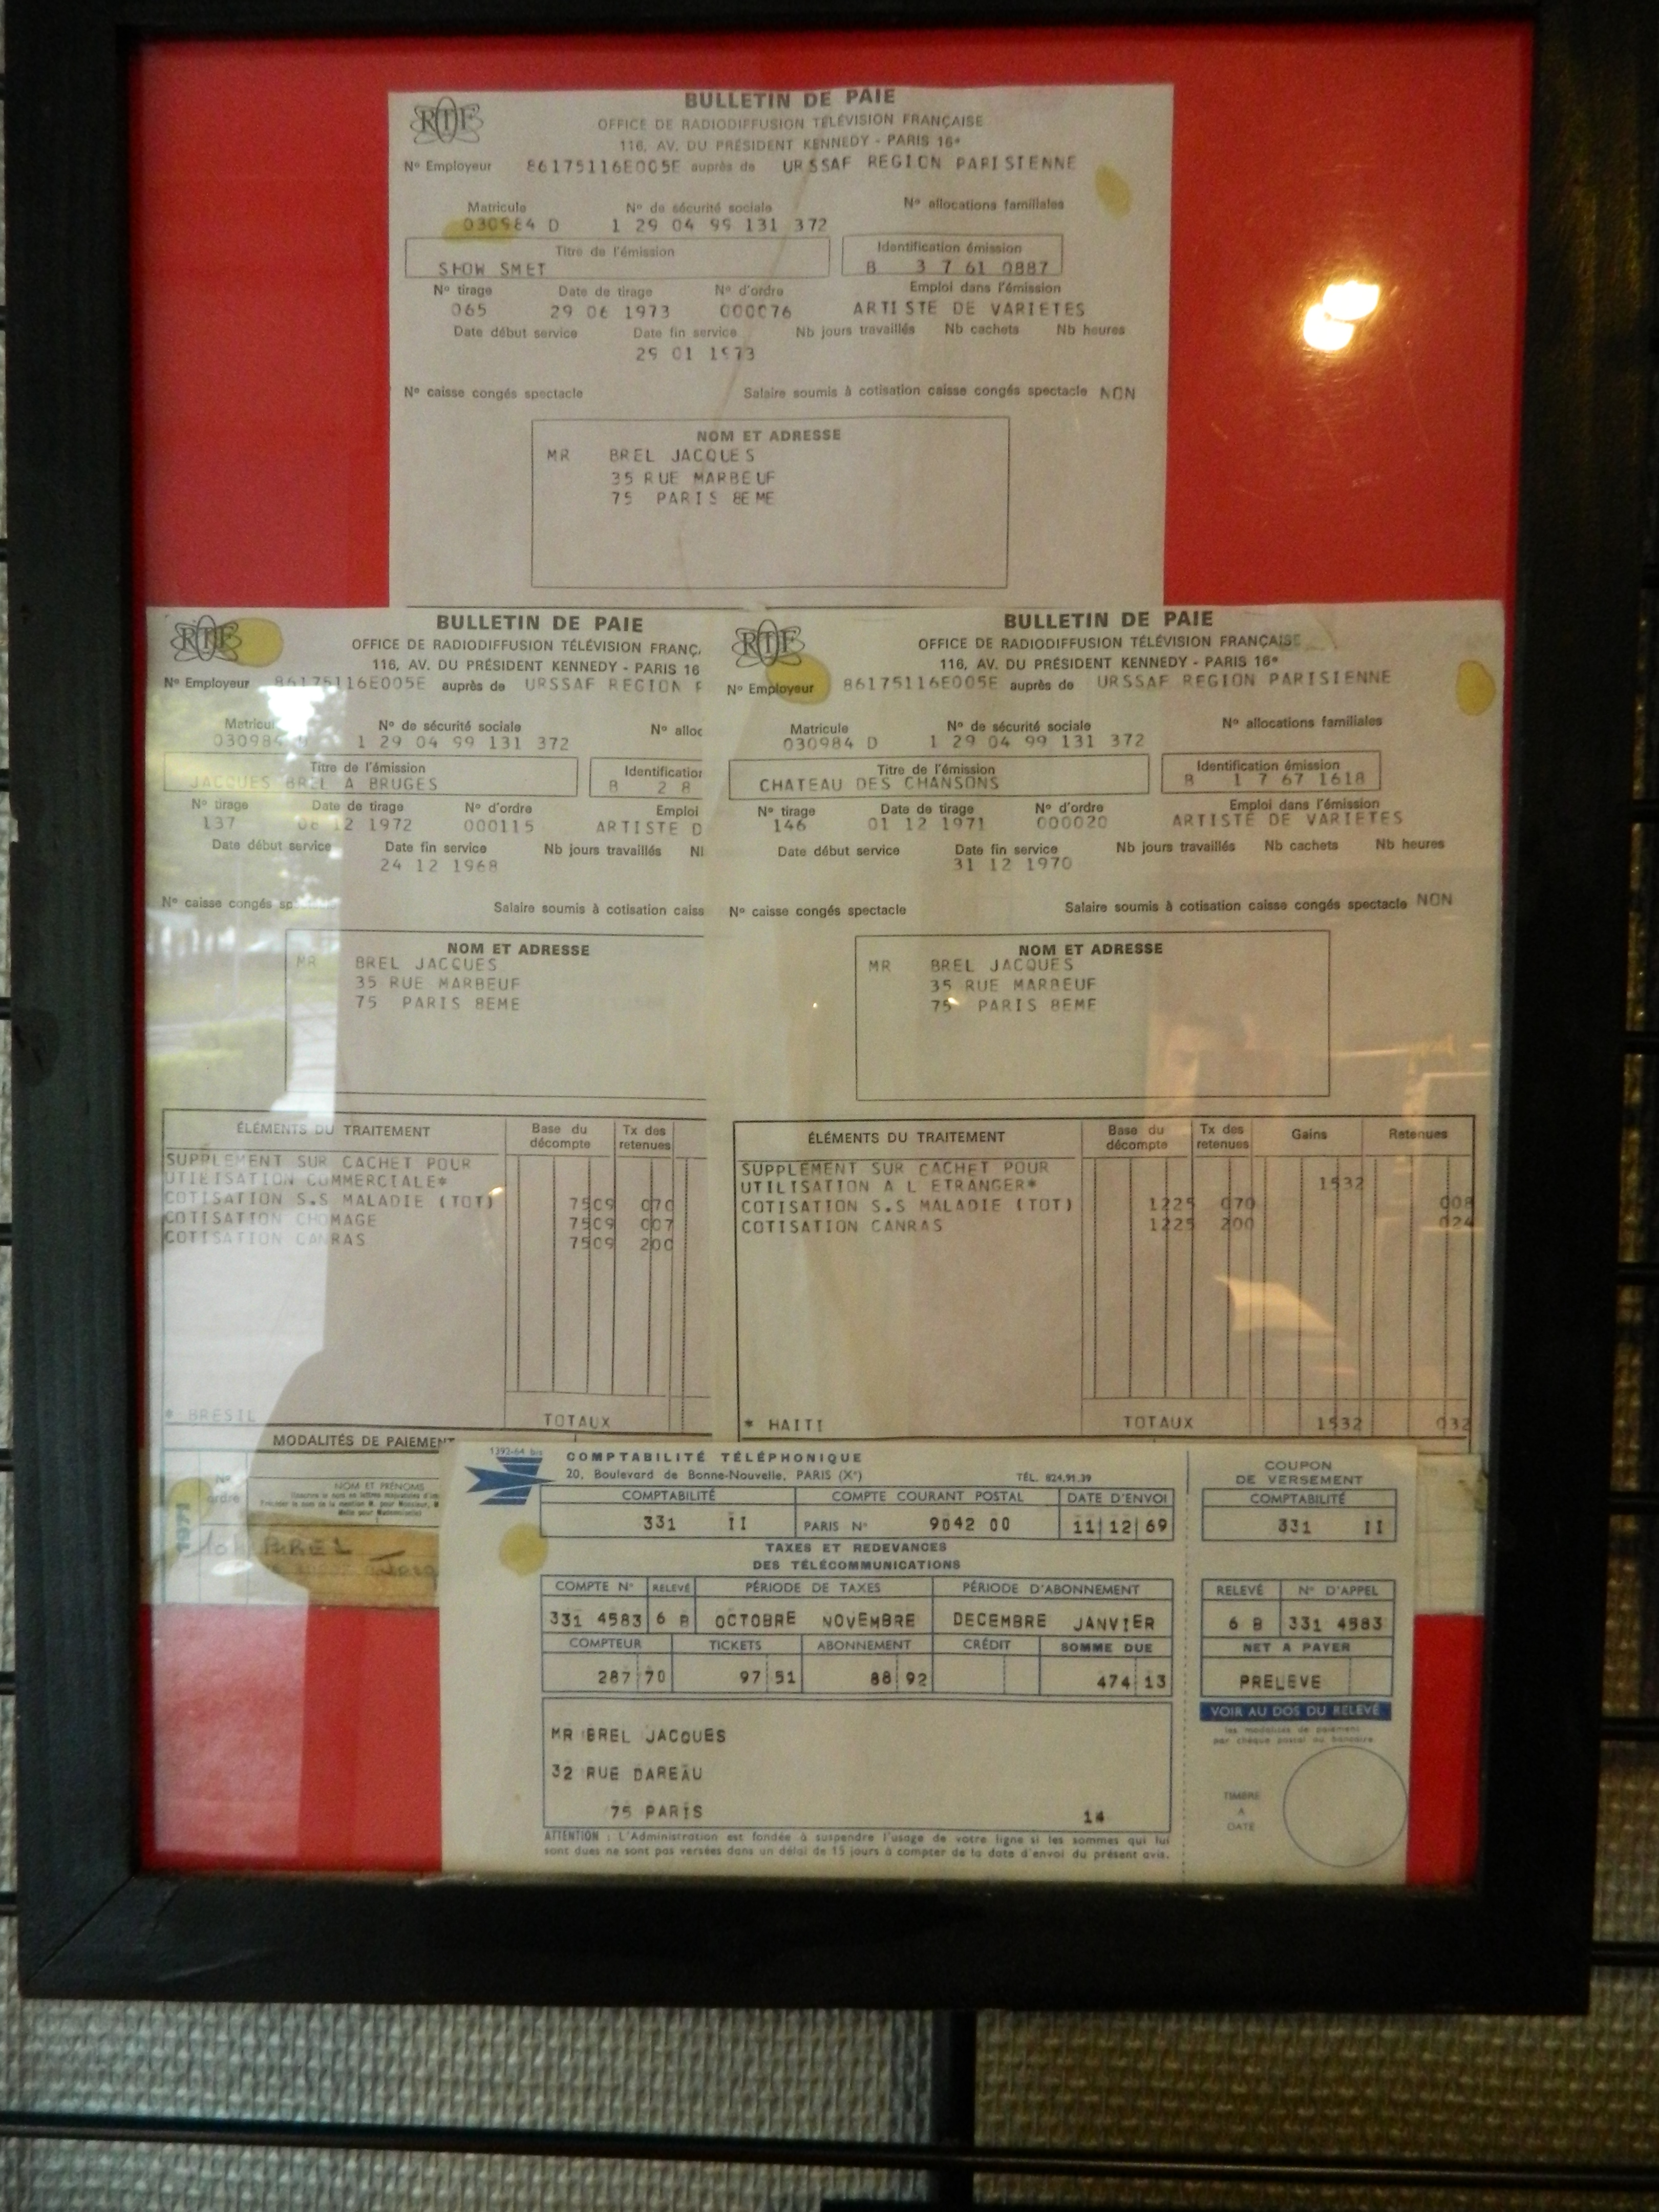 RTF
BULLETIN DE PAIE
OFFICE DE RADIODIFFUSION TÉLÉVISION FRANÇAISE
116, AV. DU PRÉSIDENT KENNEDY - PARIS 16e
No Employeur 86175116E005E auprès de URSSAF REGION PARISIENNE
Matricule No de sécurité sociale No allocations familiales
030984 D 1 29 04 99 131 372
Titre de l'émission Identification émission
SHOW SMET B 3 7 61 0887
No tirage Date de tirage No d'ordre Emploi dans l'émission
065 29 06 1973 000076 ARTISTE DE VARIETES
Date début service Date fin service Nb jours travaillés Nb cachets Nb heures
29 01 1973
No caisse congés spectacle Salaire soumis à cotisation caisse congés spectacle NON
NOM ET ADRESSE
MR BREL JACQUES
35 RUE MARBEUF
75 PARIS 8EME
RTF
BULLETIN DE PAIE
OFFICE DE RADIODIFFUSION TÉLÉVISION FRANÇ
116, AV. DU PRÉSIDENT KENNEDY - PARIS 16
No Employeur 86175116E005E auprès de URSSAF REGION P
Matricul No de sécurité sociale No alloc
030984 1 29 04 99 131 372
Titre de l'émission Identification
JACQUES BREL A BRUGES B 2 8
No tirage Date de tirage No d'ordre Emploi
137 06 12 1972 000115 ARTISTE D
Date début service Date fin service Nb jours travaillés
24 12 1968
No caisse congés sp Salaire soumis à cotisation caiss
NOM ET ADRESSE
MR BREL JACQUES
35 RUE MARBEUF
75 PARIS 8EME
ÉLÉMENTS DU TRAITEMENT Base du décompte Tx des retenues
SUPPLEMENT SUR CACHET POUR
UTILISATION COMMERCIALE*
COTISATION S.S MALADIE (TOT) 7509 070
COTISATION CHOMAGE 7509 007
COTISATION CANRAS 7509 200
* BRESIL TOTAUX
MODALITÉS DE PAIEMENT
RTF
BULLETIN DE PAIE
OFFICE DE RADIODIFFUSION TÉLÉVISION FRANÇAISE
116, AV. DU PRÉSIDENT KENNEDY - PARIS 16e
No Employeur 86175116E005E auprès de URSSAF REGION PARISIENNE
Matricule No de sécurité sociale No allocations familiales
030984 D 1 29 04 99 131 372
Titre de l'émission Identification émission
CHATEAU DES CHANSONS B 1 7 67 1618
No tirage Date de tirage No d'ordre Emploi dans l'émission
146 01 12 1971 000020 ARTISTE DE VARIETES
Date début service Date fin service Nb jours travaillés Nb cachets Nb heures
31 12 1970
No caisse congés spectacle Salaire soumis à cotisation caisse congés spectacle NON
NOM ET ADRESSE
MR BREL JACQUES
35 RUE MARBEUF
75 PARIS 8EME
ÉLÉMENTS DU TRAITEMENT Base du décompte Tx des retenues Gains Retenues
SUPPLEMENT SUR CACHET POUR
UTILISATION A L ETRANGER* 1532
COTISATION S.S MALADIE (TOT) 1225 070 008
COTISATION CANRAS 1225 200 024
* HAITI TOTAUX 1532 032
1971
No ordre
NOM ET PRÉNOMS
BREL
1392-64 bis
COMPTABILITÉ TÉLÉPHONIQUE
20, Boulevard de Bonne-Nouvelle, PARIS (Xe) TÉL. 824.91.39
COMPTABILITÉ COMPTE COURANT POSTAL DATE D'ENVOI
331 II PARIS No 9042 00 11 12 69
TAXES ET REDEVANCES
DES TÉLÉCOMMUNICATIONS
COMPTE No RELEVÉ PÉRIODE DE TAXES PÉRIODE D'ABONNEMENT
331 4583 6 B OCTOBRE NOVEMBRE DECEMBRE JANVIER
COMPTEUR TICKETS ABONNEMENT CRÉDIT SOMME DUE
287 70 97 51 88 92 474 13
MR BREL JACQUES
32 RUE DAREAU
75 PARIS 14
ATTENTION : L'Administration est fondée à suspendre l'usage de votre ligne si les sommes qui lui
sont dues ne sont pas versées dans un délai de 15 jours à compter de la date d'envoi du présent avis.
COUPON
DE VERSEMENT
COMPTABILITÉ
331 II
RELEVÉ No D'APPEL
6 B 331 4583
NET A PAYER
PRELEVE
VOIR AU DOS DU RELEVÉ
les modalités de paiement
par chèque postal ou bancaire
TIMBRE
A
DATE